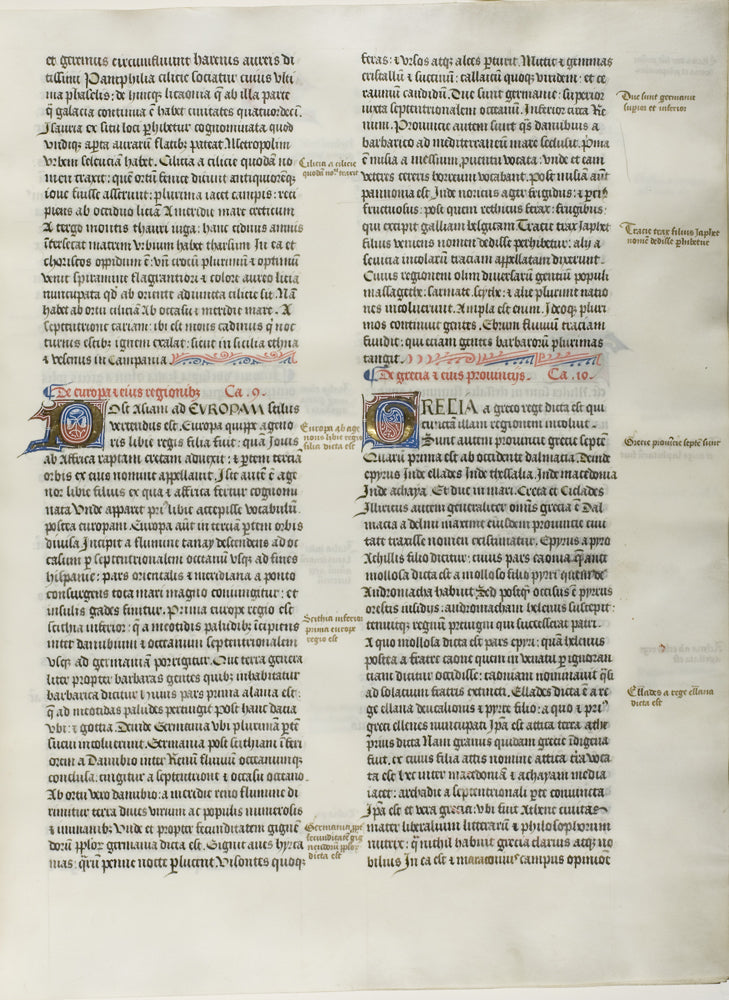 et geminus circumfluunt harenis aureis di
tissimi Pamphilia cilicie sociatur cuius vlti
ma phaselis: de hincq̄ licaonia q̄ ab illa parte
q̄ galacia continua ē habet ciuitates quatuordeci.
Isauria ex situ loci ꝑhibetur cognominata quod
vndiqꝫ aꝑta auraꝝ flatibꝫ pateat Metropolim
vrbem seleuciam habet. Cilicia a cilice quodā no
men traxit: quē ortū fenice dicunt antiquioreqꝫ
ioue fuisse asserunt: plurima iacet campis: reci
piens ab occiduo liciā A meridie mare creticum
A tergo montis thauri iuga: hanc cidnus amnis
ītersecat matrem vrbium habet tharsum In ea et
choriscos opidum ē: vn̄ crocū plurimū ⁊ optimū
venit spiramine flagrantiori ⁊ colore aureo licia
nuncupata qd̄ ab oriente adiuncta cilicie sit. Nā
habet ab ortu ciliciā Ab occasu ⁊ meridie mare. A
septentrione cariam: ibi est mons cadinus q̄ noc
turnis estibꝫ ignem exalat: sicut in sicilia ethna
⁊ vesenus in Campania
De europa ⁊ eius regionibꝫ Ca. 9.
Post Asiam ad EVROPAM stilus
vertendus est. Europa quippe ageno
ris libie regis filia fuit: quā Jouis
ab Affrica raptam cretam aduexit: ⁊ ꝑtem terciā
orbis ex eius nomine appellauit. Iste autē ē age
nor libie filius ex qua ⁊ affrica fertur cognomi
nata Vnde apparet pri' libie accepisse vocabulū
postea europam. Europa aūt in terciā ꝑtem orbis
diuisa Incipit a flumine tanay descendens ad oc
casum ꝑ septentrionalem occeanū vsqꝫ ad fines
hispanie: pars orientalis ⁊ meridiana a ponto
consurgens tota mari magno coniungitur: et
insulis gades finitur. Prima europe regio est
scithia inferior: q̄ a meotidis paludibꝫ īcipiens
inter danubium ⁊ occeanum septentrionalem
vsqꝫ ad germaniā porrigitur. Que terra genera
liter propter barbaras gentes quibꝫ inhabitatur
barbarica dicitur huius pars prima alania est:
q̄ ad meotidas paludes pertingit post hanc dacia
vbi: ⁊ gottia. Deinde Germania vbi plurimā ꝑtē
sueui incoluerunt. Germania post scithiam īferi
orem a Danubio inter Renū fluuiū occeanumqꝫ
conclusa. cingitur a septentrione ⁊ occasu occeano
Ab ortu vero danubio: a meridie reno flumine di
rimitur terra diues virum ac populis numerosis
⁊ immanibꝫ: Vnde et propter fecunditatem gignē
doꝝ pploꝝ germania dicta est. Gignit aues hyrca
nias: quaꝝ penne nocte ꝑlucent Visontes quoqꝫ
Cilicia a cilice
quodā nom̄ traxit
Europa ab age
noris libie regis
filia dicta est
Scithia inferior
prima europe
regio est
Germania ꝓpt̄
fecunditatē gig
nendoꝝ pploꝝ
dicta est
feras: ⁊ vrsos atqꝫ alces ꝑturit. Mittit ⁊ gemmas
cristallū ⁊ succinū: callaicū quoqꝫ viridem: et ce
raunium candidū. Due sunt germanie: superior
iuxta septentrionalem occeanū. Inferior circa Re
num. Prouincie autem sunt qꝫ danubius a
barbarico ad mediterraneū mare secludit. Pma
ē misia a messium ꝓuentu vocata: Vnde et eam
veteres cereris horreum vocabant. post misiā aūt
pannonia est Inde noricus ager frigidus: ⁊ parciꝫ
fructuosus: post quem rethicus ferax: frugibus:
qui excipit galliam belgicam. Tracie tirax Japhet
filius veniens nomen dedisse perhibetur: alii a
seuicia incolarū traciam appellatam dixerunt.
Cuius regionem olim diuersarū gentiū populi
massagethe: sarmate. scythe: ⁊ alie plurime natio
nes incoluerunt. Ampla est enim. Ideoqꝫ pluri
mos continuit gentes. Ebrum fluuiū traciam
fundit: qui eciam gentes barbarorū plurimas
tangit.
De grecia ⁊ eius prouincijs. Ca. 10.
GRECIA a greco rege dicta est qui
cunctā illam regionem incoluit.
Sunt autem prouincie grecie septē
Quarū prima est ab occidente dalmacia. Deinde
epyrus Inde ellades Inde thessalia. Inde macedonia
Inde achaya. Et due in mari. Creta et Ciclades
Illiricus autem generaliter omnis grecia ē Dal
macia a delmi maxime eiusdem prouincie ciui
tate traxisse nomen existimatur. Epyrus a pyro
Achillis filio dicitur: cuius pars caonia q̄ ante
molossa dicta est a molloso filio pyrri quem de
Andromacha habuit Sed postqꝫ occisus ē pyrrus
orestis insidijs: andromacham helenus suscepit:
tenuitqꝫ regnū preuigni qui successerat patri.
A quo molossa dicta est pars epyri: quā helenus
postea a fratre caone quem in venatu ꝑ ignoran
ciam dicitur occidisse: caoniam nominauit qꝰi
ad solacium fratris extincti. Ellades dicta ē a re
ge ellana deucalionis ⁊ pyrre filio: a quo ⁊ pri⁹
greci ellenes nuncupati Ip̄a est attica terra. athe
prius dicta Nam granus quidam grecie indigena
fuit. ex cuius filia attis nomine attica t̄ra voca
ta est hec inter macedoniā ⁊ achayam media
iacet: archadie a septentrionali ꝑte coniuncta
Ip̄a est et vera grecia: vbi fuit Athene ciuitas
mater liberalium litterarū ⁊ philosophorum
nutrix: q̄ nichil habuit grecia clarius atqꝫ no
bilius In ea est ⁊ maratonius campus opinioē
Due sunt germanie
sup̄ior et inferior
Tracie tirax filius Japhet
nomē dedisse ꝑhibetur
Grecie prouicie septē sunt
Ellades a rege ellana
dicta est